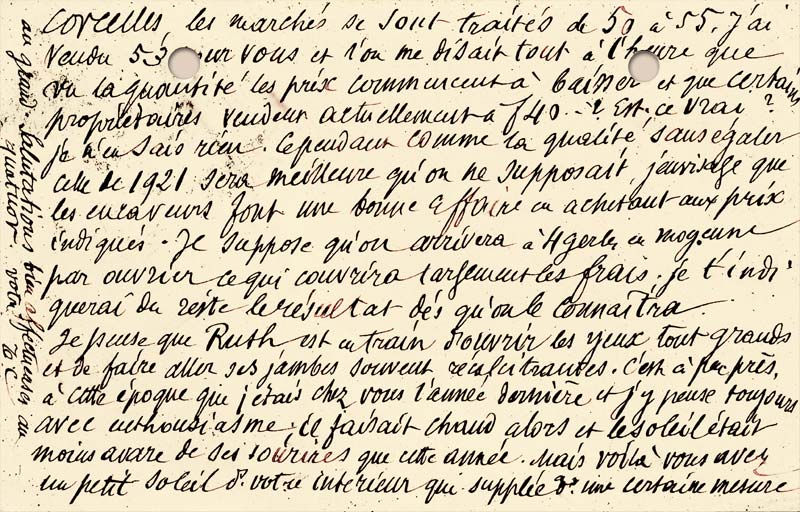 Corcelles les marchés se sont traités de 50 à 55. J'ai
vendu 53 pour vous et l'on me disait tout à l'heure que
vu la quantité les prix commencent à baisser et que certains
propriétaires vendent actuellement à f 40.-? Est-ce vrai?
je n'en sais rien. Cependant comme la qualité, sans égaler
celle de 1921 sera meilleure qu'on ne supposait, j'envisage que
les encaveurs font une bonne affaire en achetant aux prix
indiqués. Je suppose qu'on arrivera à 4 gerles en moyenne
par ouvrier ce qui couvrira largement les frais. je t'indi-
querai du reste le résultat dés qu'on le connaîtra.
Je pense que Ruth est en train d'ouvrir les yeux tout grands
et de faire aller ses jambes souvent récalcitrantes. C'est à peu près,
à cette époque que j'étais chez vous l'année dernière et j'y pense toujours
avec enthousiasme; il faisait chaud alors et le soleil était
moins avare de ses sourires que cette année. Mais voilà vous avez
un petit soleil ds. votre intérieur qui supplée ds. une certaine mesure
au grand. Salutations bien affectueuses au
quatuor. votre